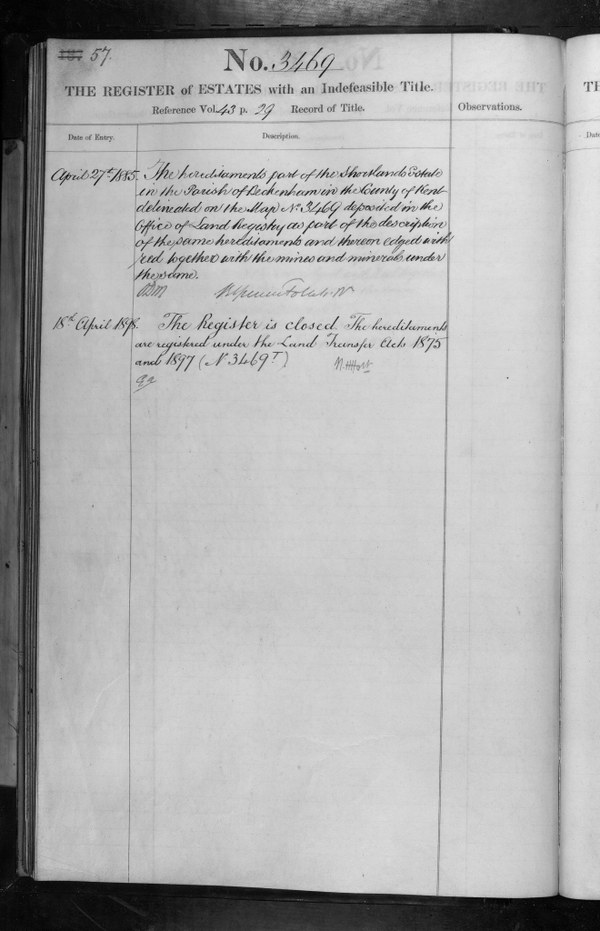 57.
No. 3469
THE REGISTER of ESTATES with an Indefeasible Title.
Reference Vol. 43 p. 29 Record of Title.
Observations.
Date of Entry.
Description.
April 27th 1885. The hereditaments part of the Shortlands Estate
in the Parish of Beckenham in the County of Kent
delineated on the Map No. 3469 deposited in the
Office of Land Registry as part of the description
of the same hereditaments and thereon edged with
red together with the mines and minerals under
the same.
18th April 1898. The Register is closed. The hereditaments
are registered under the Land Transfer Acts 1875
and 1897 (No. 3469T)
TH
Date